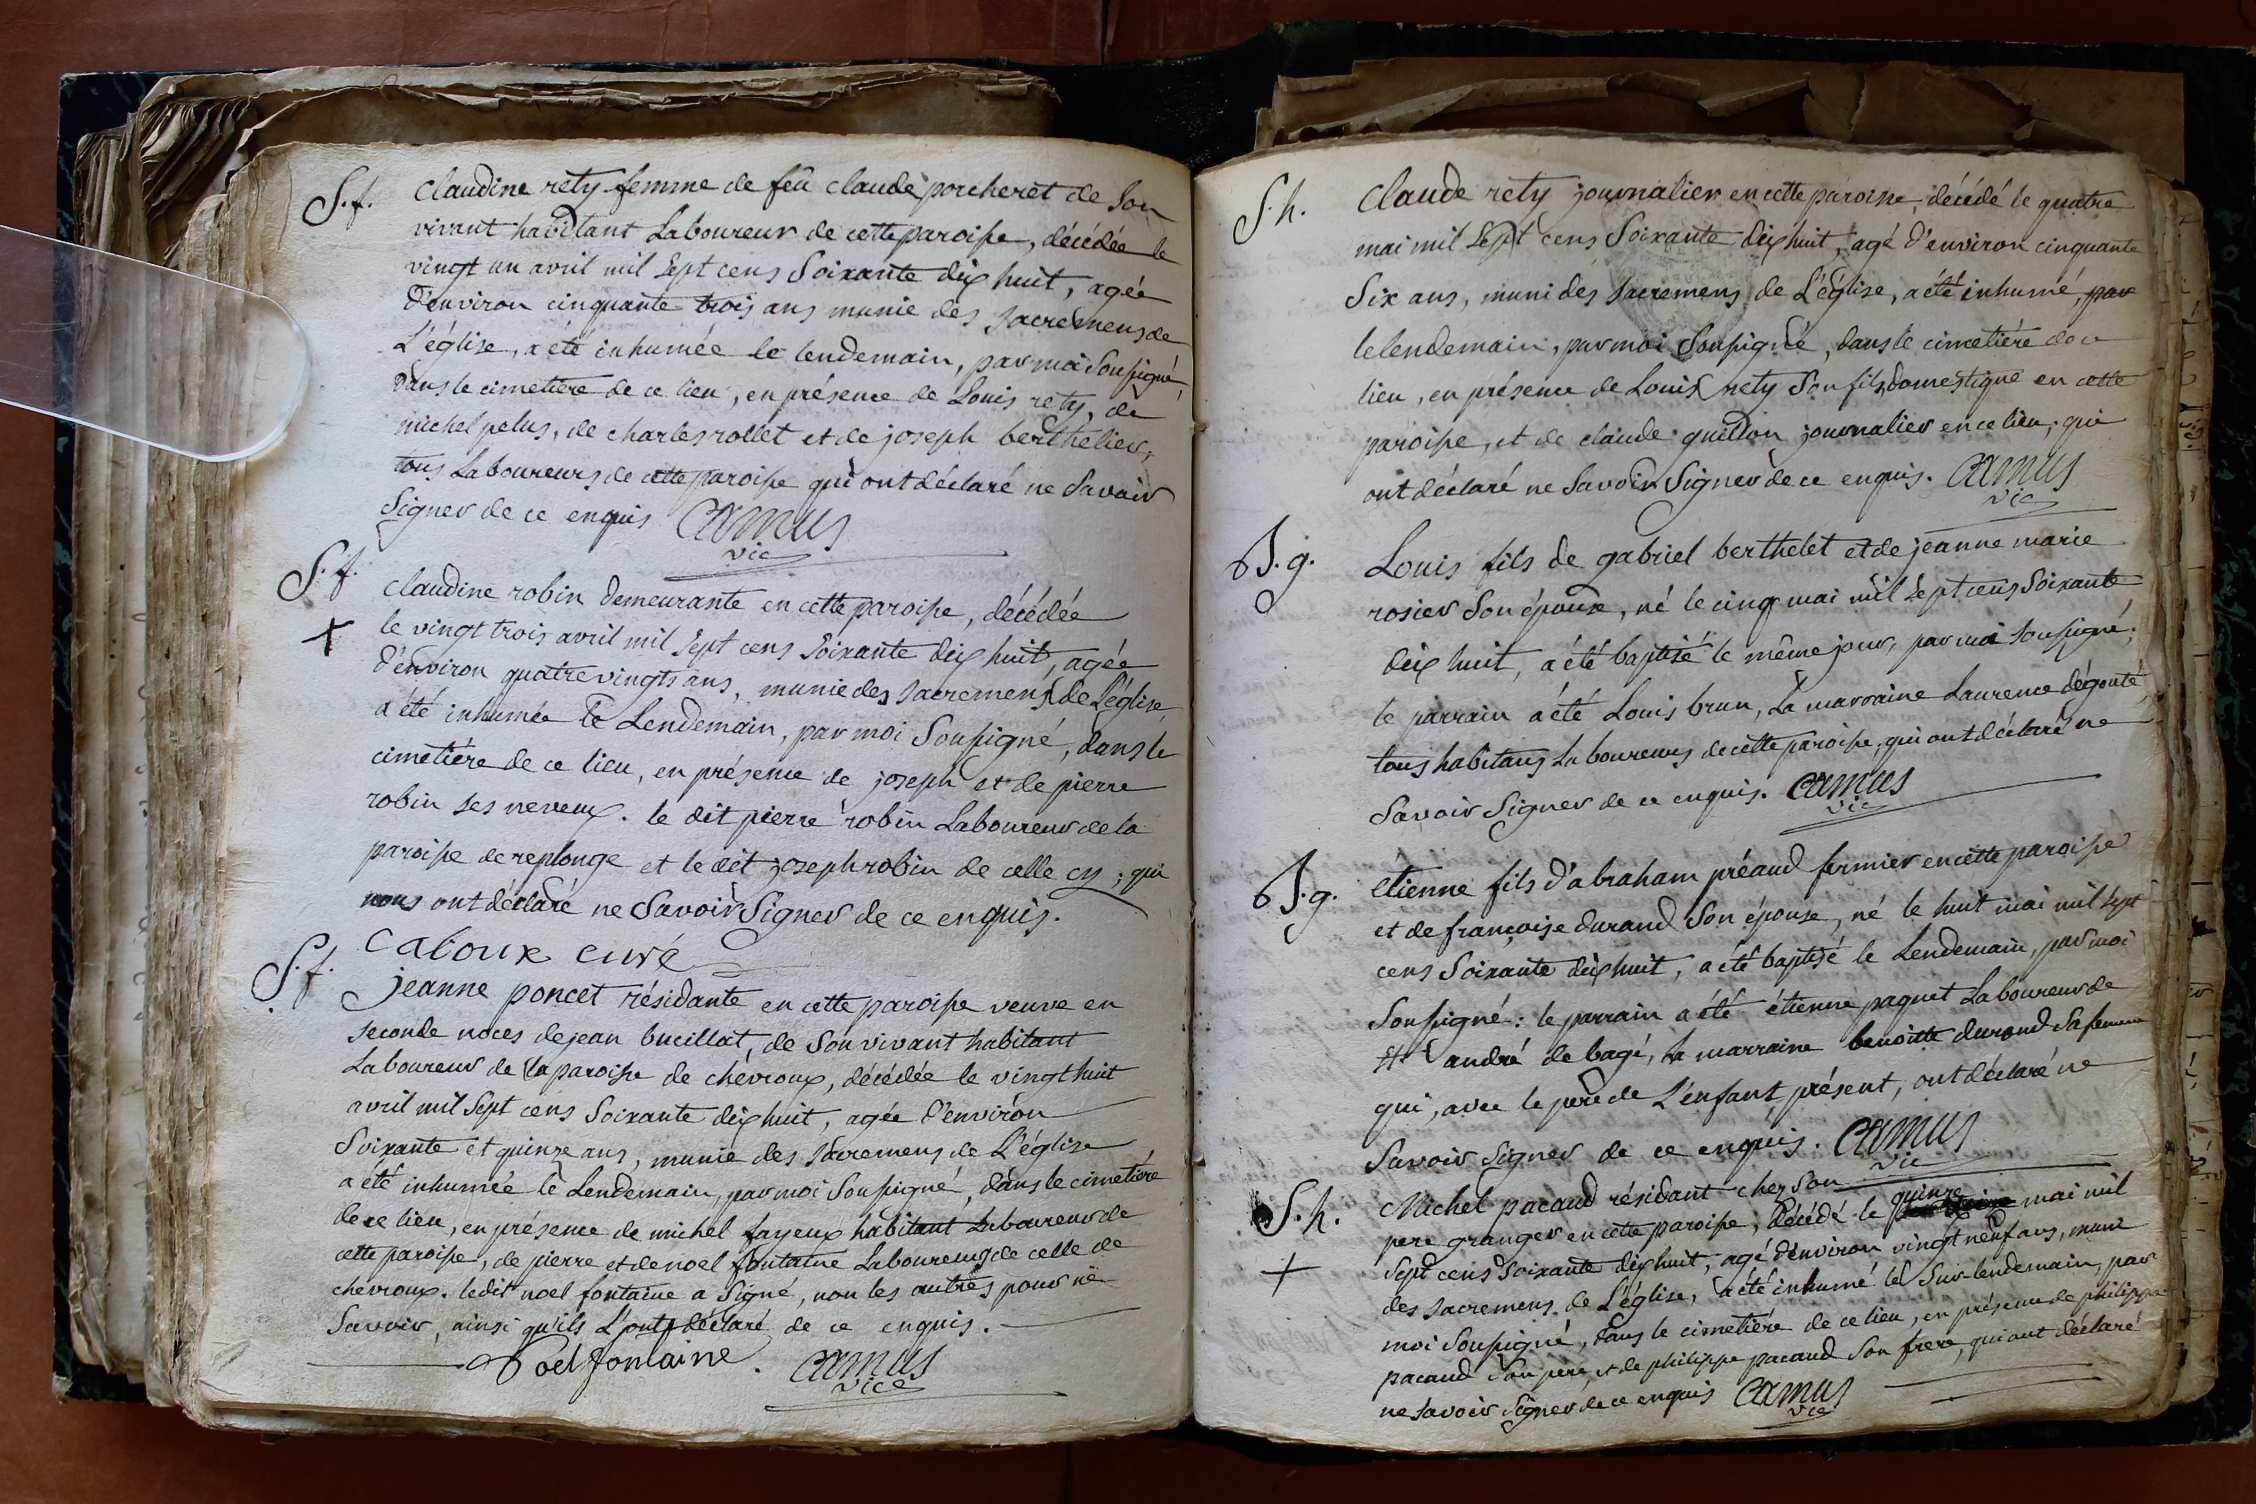 S.f. Claudine rety femme de feû claude porcheret de Son
vivant habitant Laboureur de cette paroisse, décédée le
vingt un avril mil Sept cens Soixante dix huit, agée
d'environ cinquante trois ans munie des Sacremens de
L'église, a été inhumée le lendemain, par moi Soussigné,
dans le cimetière de ce lieu, en présence de Louis rety, de
michel pelus, de charles rollet et de joseph berthelier,
tous Laboureurs de cette paroisse qui ont déclaré ne Savoir
Signer de ce enquis Camus
vic
S.f. Claudine robin demeurante en cette paroisse, décédée
+ le vingt trois avril mil Sept cens Soixante dix huit, agée
d'environ quatre vingts ans, munie des Sacremens de L'église
a été inhumée le Lendemain, par moi Soussigné, dans le
cimetière de ce lieu, en présence de joseph et de pierre
robin ses neveux. le dit pierre robin Laboureur de la
paroisse de replonge et le dit joseph robin de celle cy ; qui
nous ont déclaré ne Savoir Signer de ce enquis.
Caboux curé
S.f. jeanne poncet résidante en cette paroisse veuve en
seconde noces de jean bucillat, de Son vivant habitant
Laboureur de la paroisse de chevroux, décédée le vingt huit
avril mil Sept cens Soixante dix huit, agée d'environ
Soixante et quinze ans, munie des Sacremens de L'église
a été inhumée le Lendemain, par moi Soussigné, dans le cimetière
de ce lieu, en présence de michel fayeux habitant Laboureur de
cette paroisse, de pierre et de noel fontaine Laboureurs de celle de
chevroux. ledit noel fontaine a Signé, non les autres pour ne
Savoir, ainsi qu'ils L'ont déclaré de ce enquis.
Noel fontaine. Camus
vice
S.h. Claude rety journalier en cette paroisse, décédé le quatre
mai mil Sept cens Soixante dix huit, agé d'environ cinquante
Six ans, muni des Sacremens de L'église, a été inhumé, par
le lendemain, par moi Soussigné, dans le cimetière de ce
lieu, en présence de Louis rety Son fils, domestique en cette
paroisse, et de claude guillon journalier en ce lieu, qui
ont déclaré ne Savoir Signer de ce enquis. Camus
vic
B.g. Louis fils de gabriel berthelet et de jeanne marie
rosier Son épouse, né le cinq mai mil Sept cens Soixante
dix huit, a été baptisé le même jour, par moi Soussigné ;
le parrain a été Louis brun, La marraine Laurence dégouté
tous habitans Laboureurs de cette paroisse, qui ont déclaré ne
Savoir Signer de ce enquis. Camus
vic
B.g. étienne fils d'abraham préaud fermier en cette paroisse
et de françoise durand Son épouse, né le huit mai mil Sept
cens Soixante dix huit, a été baptisé le Lendemain, par moi
Soussigné : le parrain a été étienne paquet Laboureur de
St andré de bagé, La marraine benoitte durand Sa femme
qui, avec le pere de L'enfant présent, ont déclaré ne
Savoir Signer de ce enquis. Camus
vic
S.h. Michel pacaud résidant chez Son
quinze
pere granger en cette paroisse, décédé le mai mil
+ Sept cens Soixante dix huit, agé d'environ vingt neuf ans, muni
des Sacremens de L'église, a été inhumé le Sur-lendemain, par
moi Soussigné, dans le cimetière de ce lieu, en présence de philippe
pacaud Son pere, et de philippe pacaud Son frere, qui ont déclaré
ne Savoir Signer de ce enquis Camus
vice